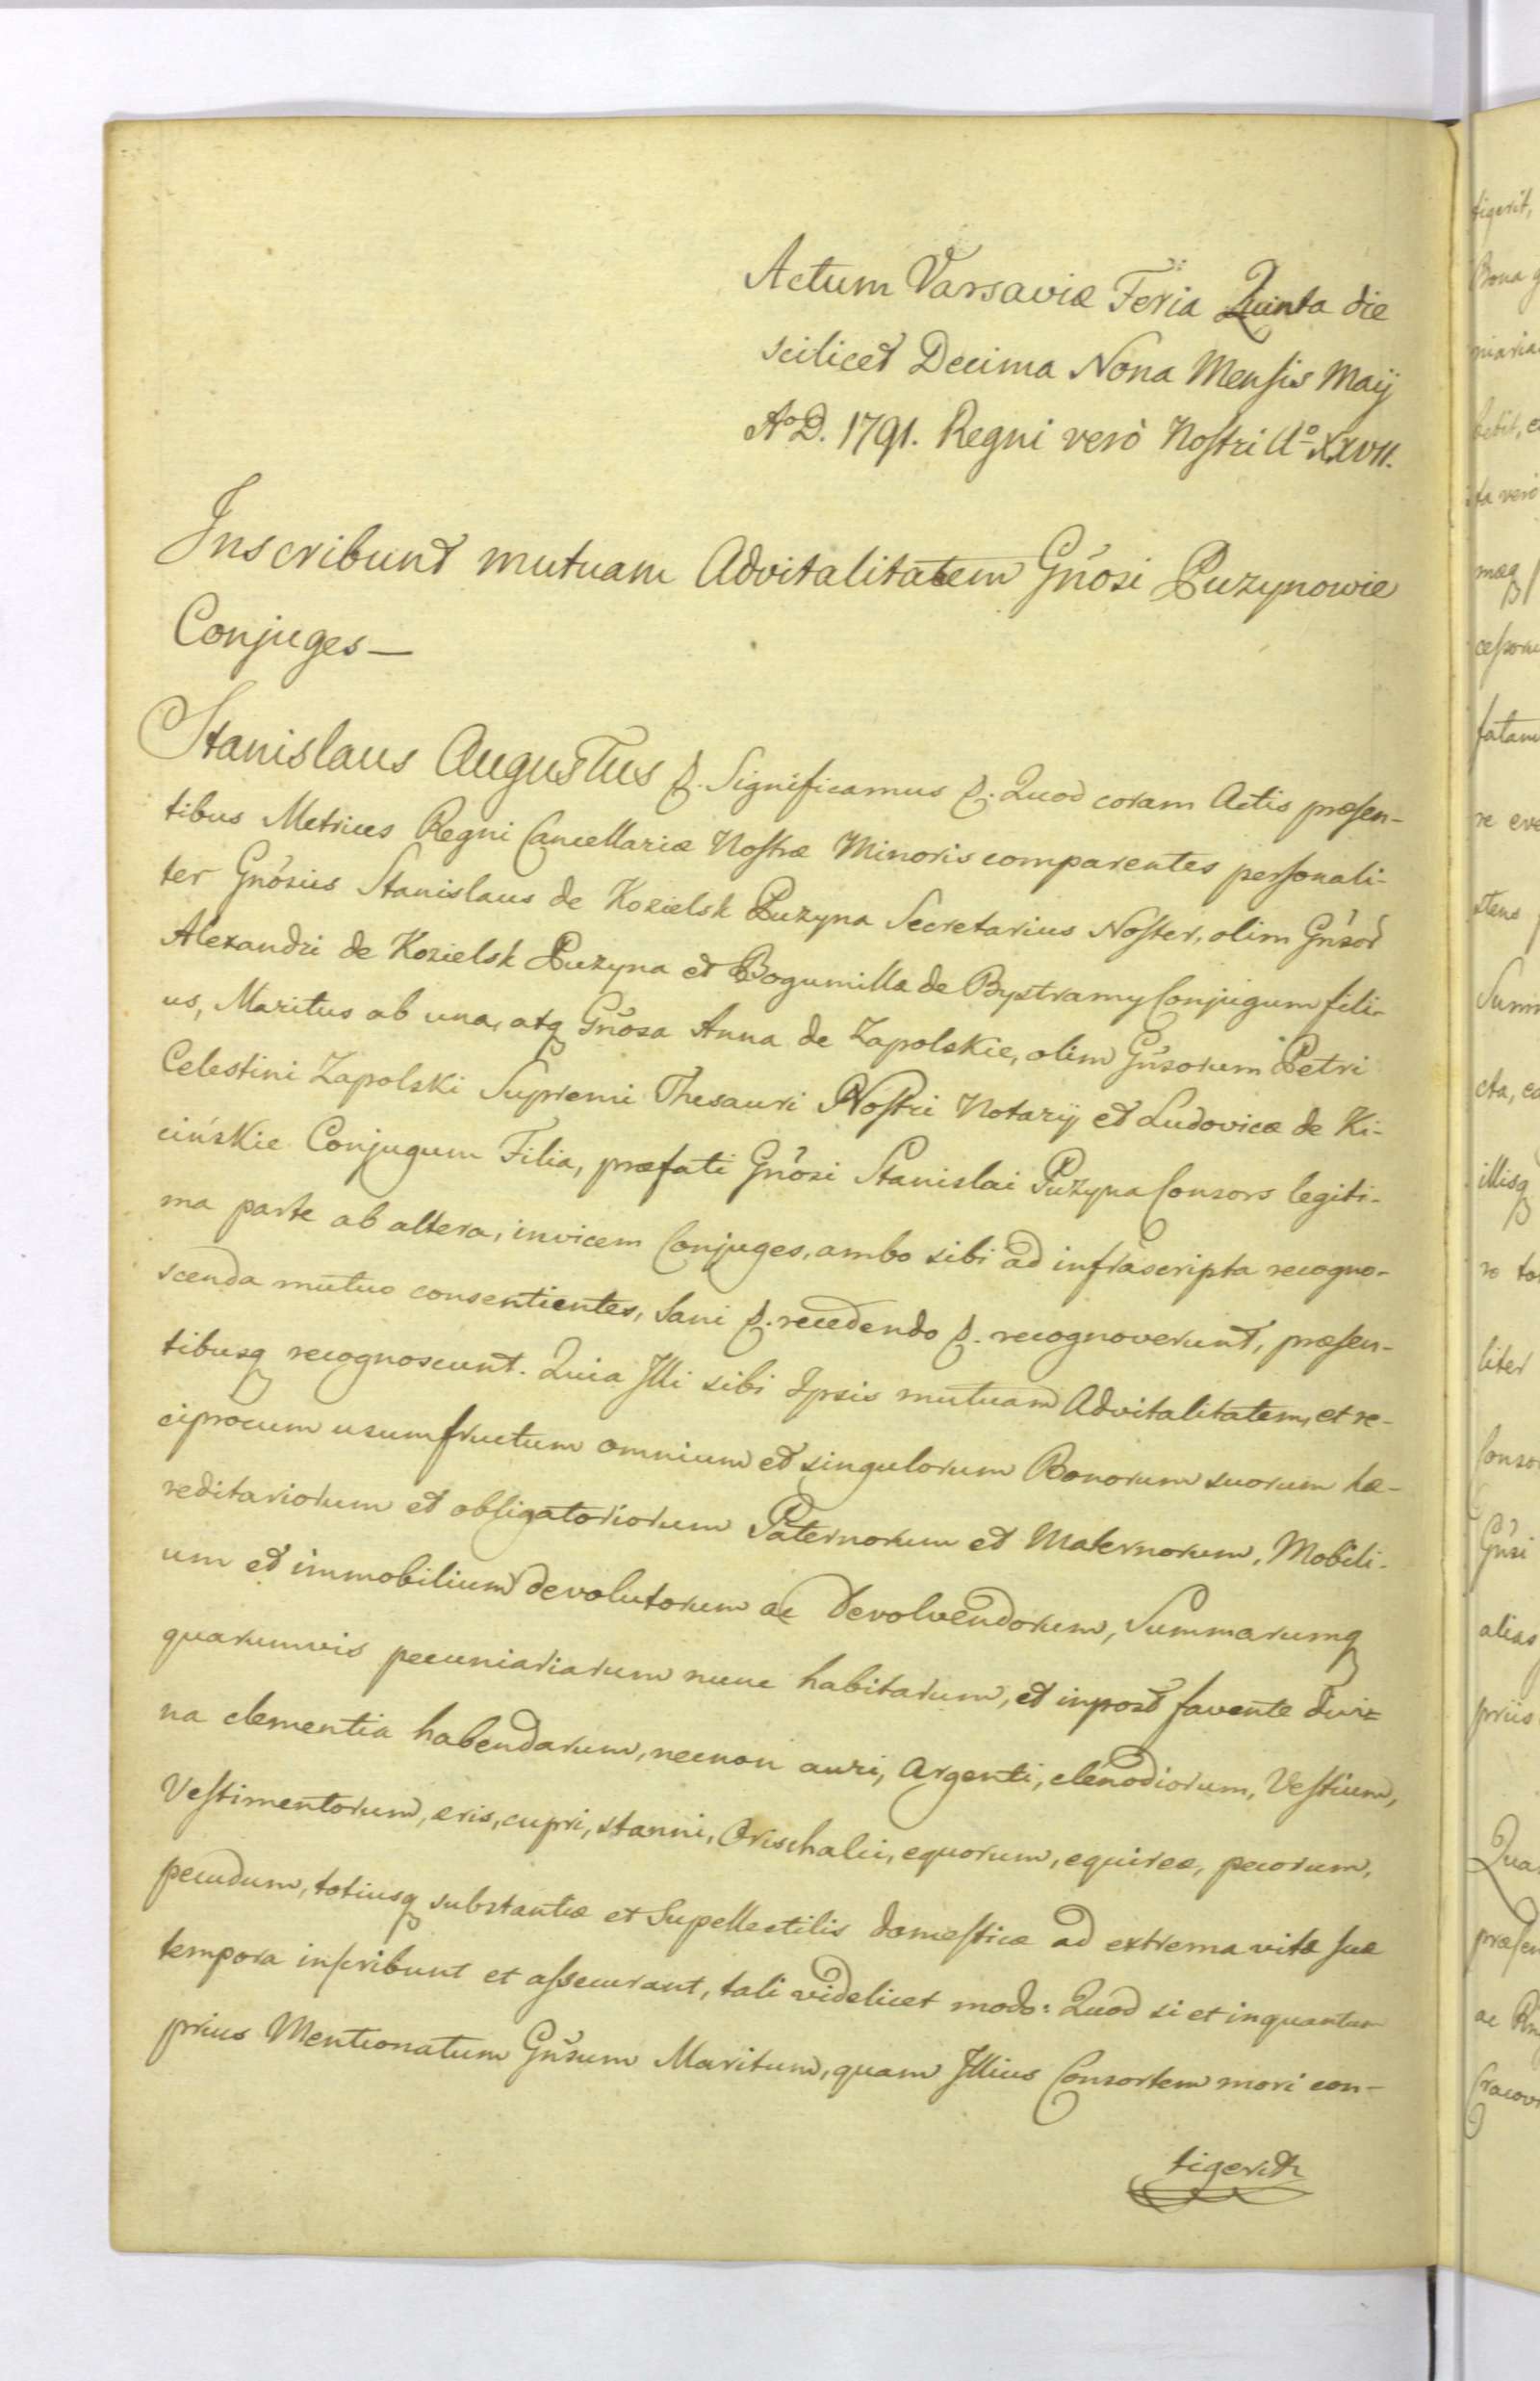 Actum Varsaviæ Feria Quinta die
scilicet Decima Nona Mensis Maij
Aº D. 1791. Regni verò Nostri Aº XXVII.
Inscribunt mutuam Advitalitatem Gnosi Puzynowie
Conjuges—
Stanislaus Augustus &. Significamus &. Quod coram Actis præsen-
tibus Metrices Regni Cancellariæ Nostræ Minoris comparentes personali-
ter Gnosus Stanislaus de Kozielsk Puzyna Secretarius Noster, olim Gnsor
Alexandri de Kozielsk Puzyna et Bogumilla de Bystramy Conjugum fili-
us, Maritus ab una, atq Gnosa Anna de Zapolskie, olim Gnsorum Petri
Celestini Zapolski Supremi Thesauri Nostri Notarij et Ludovicæ de Ki-
cińskie Conjugum Filia, præfati Gnosi Stanislai Puzyna Consors legiti-
ma parte ab altera, invicem Conjuges, ambo sibi ad infrascripta recogno-
scenda mutuo consentientes, Sani &. recedendo &. recognoverunt, præsen-
tibusq recognoscunt. Quia Illi sibi Ipsis mutuam Advitalitatem, et re-
ciprocum usumfructum omnium et singulorum Bonorum suorum hæ-
reditariorum et obligatoriorum Paternorum et Maternorum, Mobili-
um et immobilium devolutorum ac Devolvendorum, Summarumq
quarumvis pecuniariarum nunc habitarum, et inpost favente divi-
na clementia habendarum, necnon auri, Argenti, clenodiorum, Vestium,
Vestimentorum, æris, cupri, stanni, Orischalci, equorum, equireæ, pecorum,
pecudum, totiusq substantiæ et Supellectilis domesticæ ad extrema vitæ suæ
tempora inscribunt et assecurant, tali videlicet modo: Quod si et inquantum
prius Mentionatum Gnsum Maritum, quam Illius Consortem mori con-
tigerit